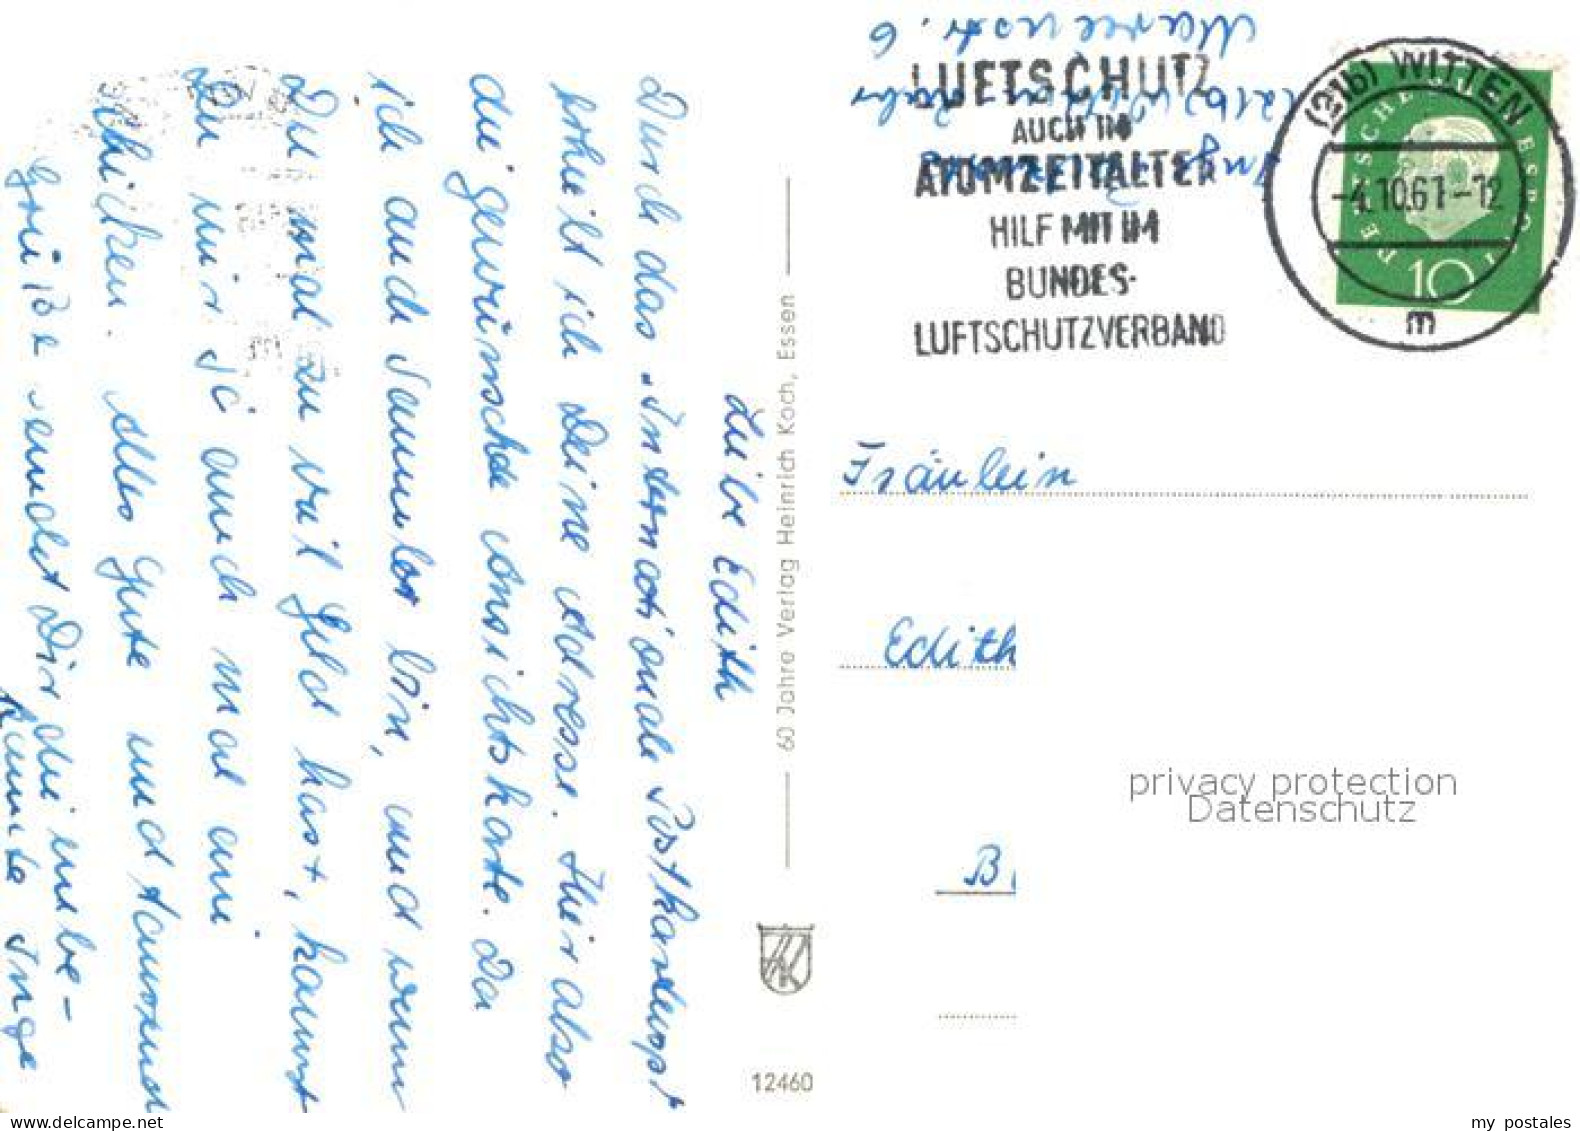 Liebe Edith
Durch das Internationale Postkarten
erhielt ich Deine Adresse. Hier also
die gewünschte Ansichtskarte. Da
ich auch Sammler bin, und wenn
Du mal zu viel Geld hast, kannst
Du mir ja auch mal eine
schicken. Alles Gute und tausend
Grüße sendet Dir die unbe-
kannte Inge
60 Jahre Verlag Heinrich Koch, Essen
12460
Inge
(21b) Witten Ruhr
str. 6
LUFTSCHUTZ
AUCH IM
ATOMZEITALTER
HILF MIT IM
BUNDES-
LUFTSCHUTZVERBAND
(21b) WITTEN
-4.10.61-12
m
DEUTSCHE BUNDESPOST
10
Fräulein
Edith
B
privacy protection
Datenschutz
my postales
delcampe.net